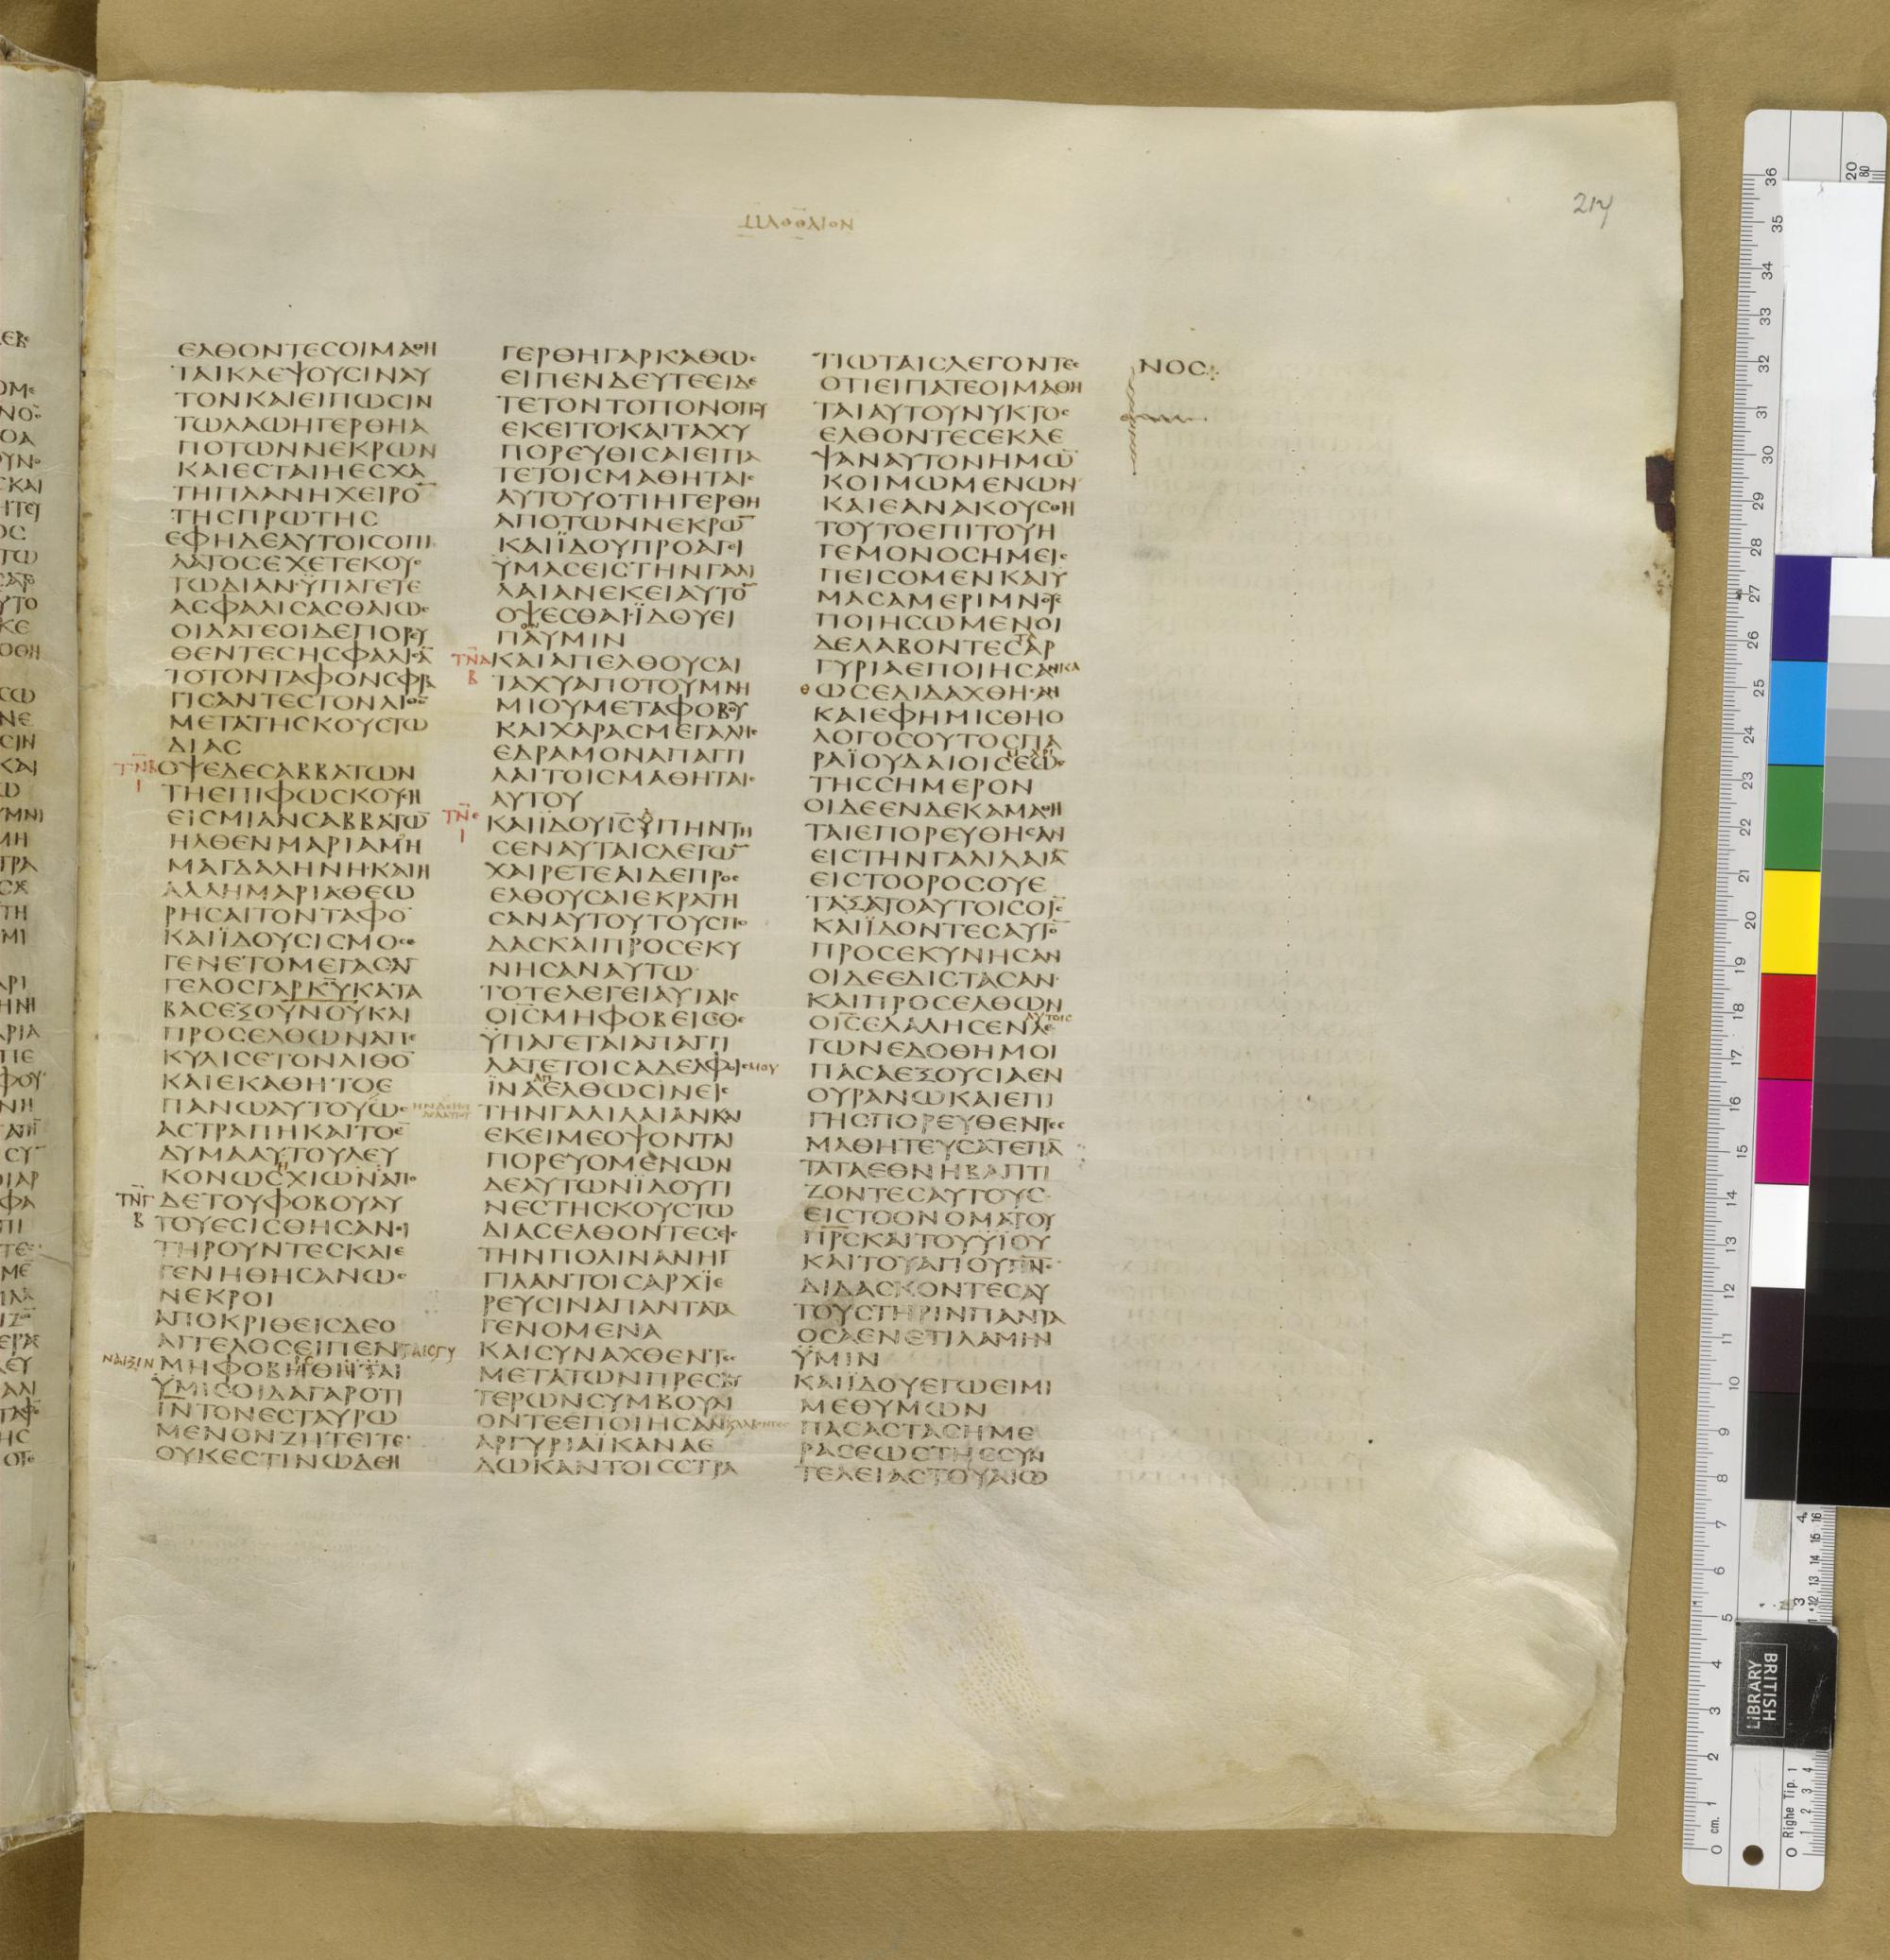 217
ΕΛΘΟΝΤΕϹΟΙΜΑΘΗ
ΤΑΙΚΛΕΨΟΥϹΙΝΑΥ
ΤΟΝΚΑΙΕΙΠΩϹΙΝ
ΤΩΛΑΩΗΓΕΡΘΗΑ
ΠΟΤΩΝΝΕΚΡΩΝ
ΚΑΙΕϹΤΑΙΗΕϹΧΑ
ΤΗΠΛΑΝΗΧΕΙΡΟ̅
ΤΗϹΠΡΩΤΗϹ
ΕΦΗΔΕΑΥΤΟΙϹΟΠΙ
ΛΑΤΟϹΕΧΕΤΕΚΟΥϹ
ΤΩΔΙΑΝ·ΫΠΑΓΕΤΕ
ΑϹΦΑΛΙϹΑϹΘΑΙΩϹ
ΟΙΔΑΤΕΟΙΔΕΠΟΡΕΥ
ΘΕΝΤΕϹΗϹΦΑΛΙϹΑ̅
ΤΟΤΟΝΤΑΦΟΝϹΦΡΑ
ΓΙϹΑΝΤΕϹΤΟΝΛΙΘΟ̅
ΜΕΤΑΤΗϹΚΟΥϹΤΩ
ΔΙΑϹ
ΤΝΒ
Ι
ΟΨΕΔΕϹΑΒΒΑΤΩΝ
ΤΗΕΠΙΦΩϹΚΟΥϹΗ
ΕΙϹΜΙΑΝϹΑΒΒΑΤΩ̅
ΗΛΘΕΝΜΑΡΙΑΜΗ
ΜΑΓΔΑΛΗΝΗ·ΚΑΙΗ
ΑΛΛΗΜΑΡΙΑΘΕΩ
ΡΗϹΑΙΤΟΝΤΑΦΟ̅
ΚΑΙΪΔΟΥϹΙϹΜΟϹΕ
ΓΕΝΕΤΟΜΕΓΑϹΑΓ
ΓΕΛΟϹΓΑΡΚ̅Υ̅ΚΑΤΑ
ΒΑϹΕΞΟΥΝΟΥΚΑΙ
ΠΡΟϹΕΛΘΩΝΑΠΕ
ΚΥΛΙϹΕΤΟΝΛΙΘΟ̅
ΚΑΙΕΚΑΘΗΤΟΕ
ΠΑΝΩΑΥΤΟΥΩϹ
ΑϹΤΡΑΠΗΚΑΙΤΟΕ̅
ΔΥΜΑΑΥΤΟΥΛΕΥ
ΚΟΝΩϹΧΙΩΝΑΠΟ
ΤΝΓ
Β
ΔΕΤΟΥΦΟΒΟΥΑΥ
ΤΟΥΕϹΙϹΘΗϹΑΝΟΙ
ΤΗΡΟΥΝΤΕϹΚΑΙΕ
ΓΕΝΗΘΗϹΑΝΩϹ
ΝΕΚΡΟΙ
ΑΠΟΚΡΙΘΕΙϹΔΕΟ
ΑΓΓΕΛΟϹΕΙΠΕΝΤΑΙϹΓΥ
ΝΑΙΞΙΝ
ΜΗΦΟΒΗΘΗΤΑΙ
ΫΜΙϹΟΙΔΑΓΑΡΟΤΙ
Ι̅Ν̅ΤΟΝΕϹΤΑΥΡΩ
ΜΕΝΟΝΖΗΤΕΙΤΕ·
ΟΥΚΕϹΤΙΝΩΔΕΗ
ΓΕΡΘΗΓΑΡΚΑΘΩϹ
ΕΙΠΕΝΔΕΥΤΕΕΙΔΕ
ΤΕΤΟΝΤΟΠΟΝΟΠΟΥ
ΕΚΕΙΤΟ·ΚΑΙΤΑΧΥ
ΠΟΡΕΥΘΙϹΑΙΕΙΠΑ
ΤΕΤΟΙϹΜΑΘΗΤΑΙϹ
ΑΥΤΟΥΟΤΙΗΓΕΡΘΗ
ΑΠΟΤΩΝΝΕΚΡΩ̅
ΚΑΙΪΔΟΥΠΡΟΑΓΕΙ
ΫΜΑϹΕΙϹΤΗΝΓΑΛΙ
ΛΑΙΑΝΕΚΕΙΑΥΤΟ̅
ΟΨΕϹΘΑΙ·ΪΔΟΥΕΙ
ΠΑΥΜΙΝ
ΤΝΔ
Β
ΚΑΙΑΠΕΛΘΟΥϹΑΙ
ΤΑΧΥΑΠΟΤΟΥΜΝΗ
ΜΙΟΥΜΕΤΑΦΟΒΟΥ
ΚΑΙΧΑΡΑϹΜΕΓΑΛΗϹ
ΕΔΡΑΜΟΝΑΠΑΓΓΙ
ΛΑΙΤΟΙϹΜΑΘΗΤΑΙϹ
ΑΥΤΟΥ
ΤΝΕ
Ι
ΚΑΙΪΔΟΥΙ̅Ϲ̅ΫΠΗΝΤΗ
ϹΕΝΑΥΤΑΙϹΛΕΓΩ̅
ΧΑΙΡΕΤΕΑΙΔΕΠΡΟϹ
ΕΛΘΟΥϹΑΙΕΚΡΑΤΗ
ϹΑΝΑΥΤΟΥΤΟΥϹΠΟ
ΔΑϹΚΑΙΠΡΟϹΕΚΥ
ΝΗϹΑΝΑΥΤΩ
ΤΟΤΕΛΕΓΕΙΑΥΤΑΙϹ
ΟΙ̅Ϲ̅ΜΗΦΟΒΕΙϹΘΕ
ΫΠΑΓΕΤΑΙΑΠΑΓΓΙ
ΛΑΤΕΤΟΙϹΑΔΕΛΦΟΙϹΜΟΥ
ΪΝΑΕΛΘΩϹΙΝΕΙϹ
ΤΗΝΓΑΛΙΛΑΙΑΝΚΑΙ
ΕΚΕΙΜΕΟΨΟΝΤΑΙ
ΠΟΡΕΥΟΜΕΝΩΝ
ΔΕΑΥΤΩΝΪΔΟΥΤΙ
ΝΕϹΤΗϹΚΟΥϹΤΩ
ΔΙΑϹΕΛΘΟΝΤΕϹΕΙϹ
ΤΗΝΠΟΛΙΝΑΝΗΓ
ΓΙΛΑΝΤΟΙϹΑΡΧΪΕ
ΡΕΥϹΙΝΑΠΑΝΤΑΤΑ
ΓΕΝΟΜΕΝΑ
ΚΑΙϹΥΝΑΧΘΕΝΤΕϹ
ΜΕΤΑΤΩΝΠΡΕϹΒΥ
ΤΕΡΩΝϹΥΜΒΟΥΛΙ
ΟΝΤΕΕΠΟΙΗϹΑΝ
ΑΡΓΥΡΙΑΪΚΑΝΑΕ
ΔΩΚΑΝΤΟΙϹϹΤΡΑ
ΤΙΩΤΑΙϹΛΕΓΟΝΤΕϹ
ΟΤΙΕΙΠΑΤΕΟΙΜΑΘΗ
ΤΑΙΑΥΤΟΥΝΥΚΤΟϹ
ΕΛΘΟΝΤΕϹΕΚΛΕ
ΨΑΝΑΥΤΟΝΗΜΩ̅
ΚΟΙΜΩΜΕΝΩΝ
ΚΑΙΕΑΝΑΚΟΥϹΘΗ
ΤΟΥΤΟΕΠΙΤΟΥΗ
ΓΕΜΟΝΟϹΗΜΕΙϹ
ΠΕΙϹΟΜΕΝΚΑΙΫ
ΜΑϹΑΜΕΡΙΜΝΟΥϹ
ΠΟΙΗϹΩΜΕΝΟΙ
ΔΕΛΑΒΟΝΤΕϹΑΡ
ΓΥΡΙΑΕΠΟΙΗϹΑΝ
ΩϹΕΔΙΔΑΧΘΗϹΑΝ
ΚΑΙΕΦΗΜΙϹΘΗΟ
ΛΟΓΟϹΟΥΤΟϹΠΑ
ΡΑΪΟΥΔΑΙΟΙϹΕΩϹ
ΤΗϹϹΗΜΕΡΟΝ
ΟΙΔΕΕΝΔΕΚΑΜΑΘΗ
ΤΑΙΕΠΟΡΕΥΘΗϹΑΝ
ΕΙϹΤΗΝΓΑΛΙΛΑΙΑ̅
ΕΙϹΤΟΟΡΟϹΟΥΕ
ΤΑΞΑΤΟΑΥΤΟΙϹΟΙϹ
ΚΑΙΪΔΟΝΤΕϹΑΥΤΟ̅
ΠΡΟϹΕΚΥΝΗϹΑΝ
ΟΙΔΕΕΔΙϹΤΑϹΑΝ·
ΚΑΙΠΡΟϹΕΛΘΩΝ
ΟΙ̅Ϲ̅ΕΛΑΛΗϹΕΝΛΕ
ΑΥΤΟΙϹ
ΓΩΝΕΔΟΘΗΜΟΙ
ΠΑϹΑΕΞΟΥϹΙΑΕΝ
ΟΥΡΑΝΩΚΑΙΕΠΙ
ΓΗϹΠΟΡΕΥΘΕΝΤΕϹ
ΜΑΘΗΤΕΥϹΑΤΕΠΑ̅
ΤΑΤΑΕΘΝΗΒΑΠΤΙ
ΖΟΝΤΕϹΑΥΤΟΥϹ
ΕΙϹΤΟΟΝΟΜΑΤΟΥ
Π̅Ρ̅Ϲ̅ΚΑΙΤΟΥΫΪΟΥ
ΚΑΙΤΟΥΑΓΙΟΥΠ̅Ν̅Ϲ̅
ΔΙΔΑϹΚΟΝΤΕϹΑΥ
ΤΟΥϹΤΗΡΙΝΠΑΝΤΑ
ΟϹΑΕΝΕΤΙΛΑΜΗΝ
ΫΜΙΝ
ΚΑΙΪΔΟΥΕΓΩΕΙΜΙ
ΜΕΘΥΜΩΝ
ΠΑϹΑϹΤΑϹΗΜΕ
ΡΑϹΕΩϹΤΗϹϹΥΝ
ΤΕΛΕΙΑϹΤΟΥΑΙΩ
ΝΟϹ:
BRITISH
LIBRARY